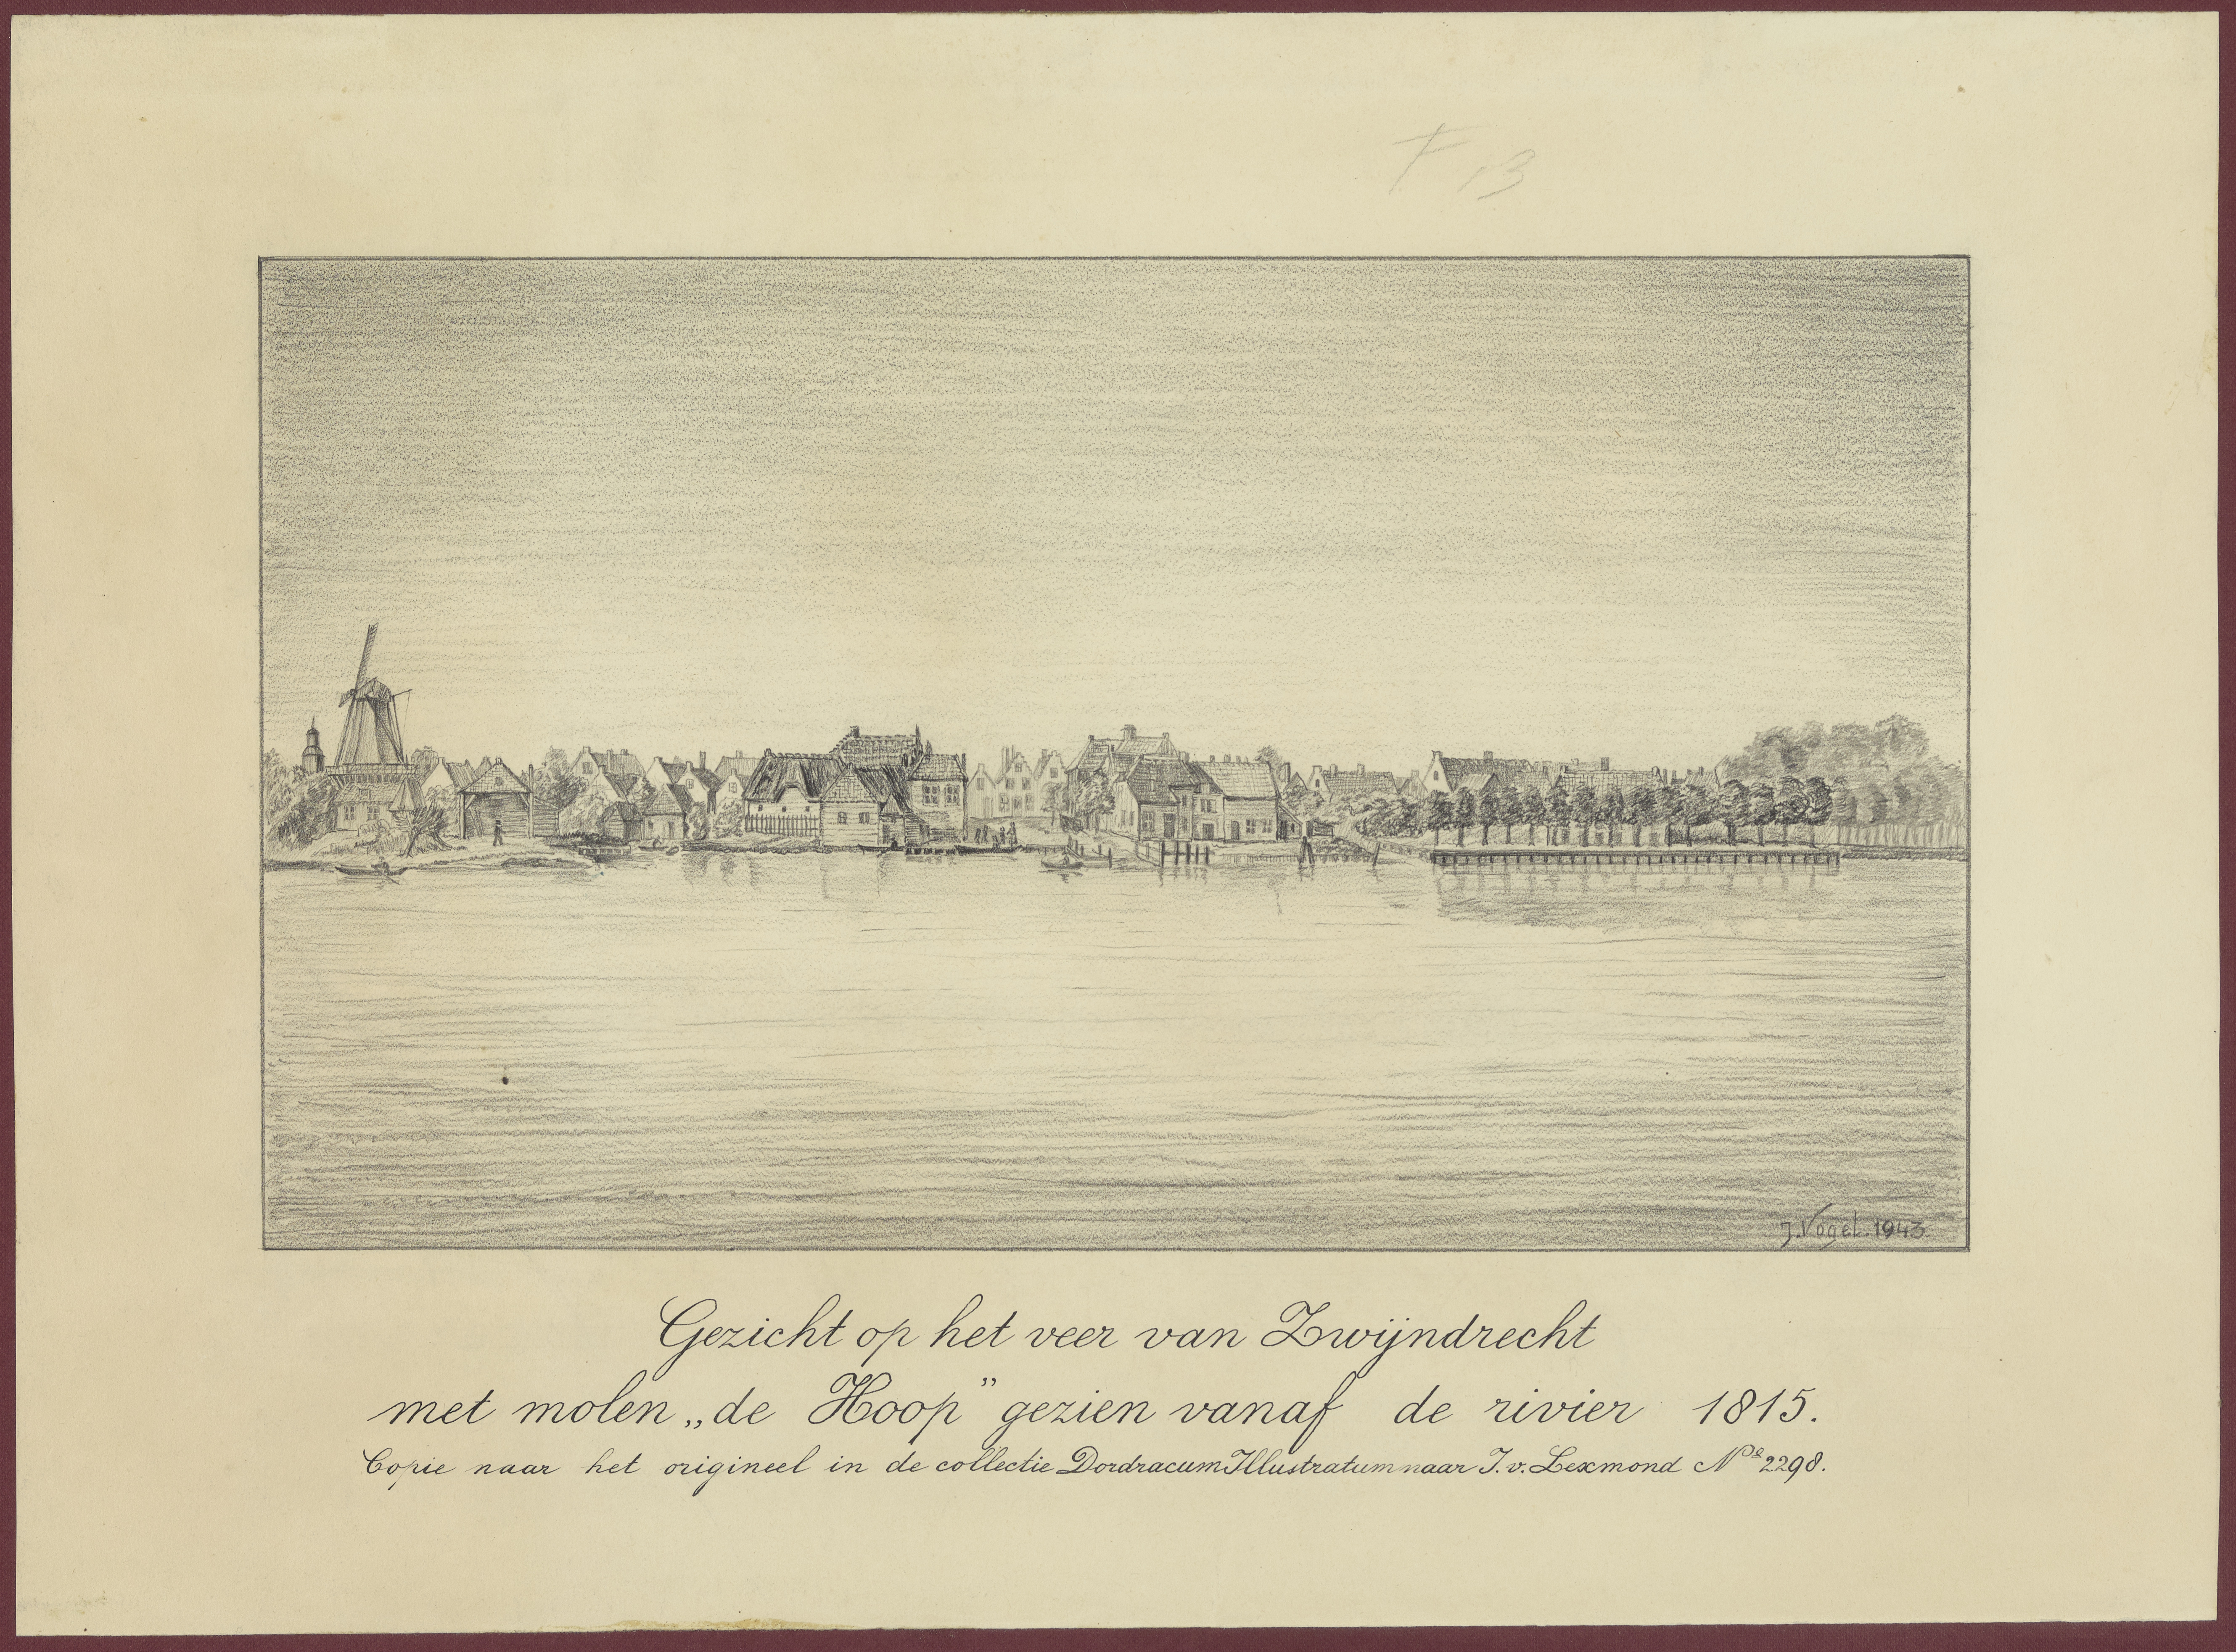 F 13
J. Vogel. 1943
Gezicht op het veer van Zwijndrecht
met molen „de Hoop” gezien vanaf de rivier 1815.
Copie naar het origineel in de collectie Dordracum Illustratum naar J. v. Lexmond No 2298.